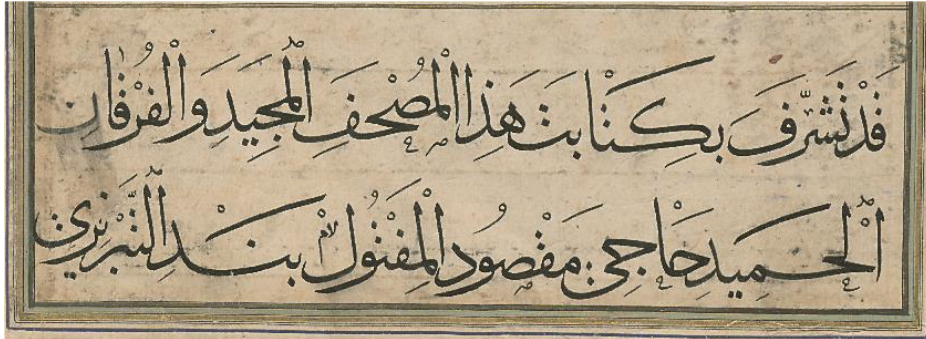 قَدْ تَشَرَّفَ بِكِتْابَتْ هَذِا الْمُصْحَفِ الْمَجِيَدِ وَالْفُرْقٰانِ
اَلْحَمِيدِ حٰاجِى مَقْصُودِ الْمَفْتُولْ بَنْدِ التَّبْرِيزِي